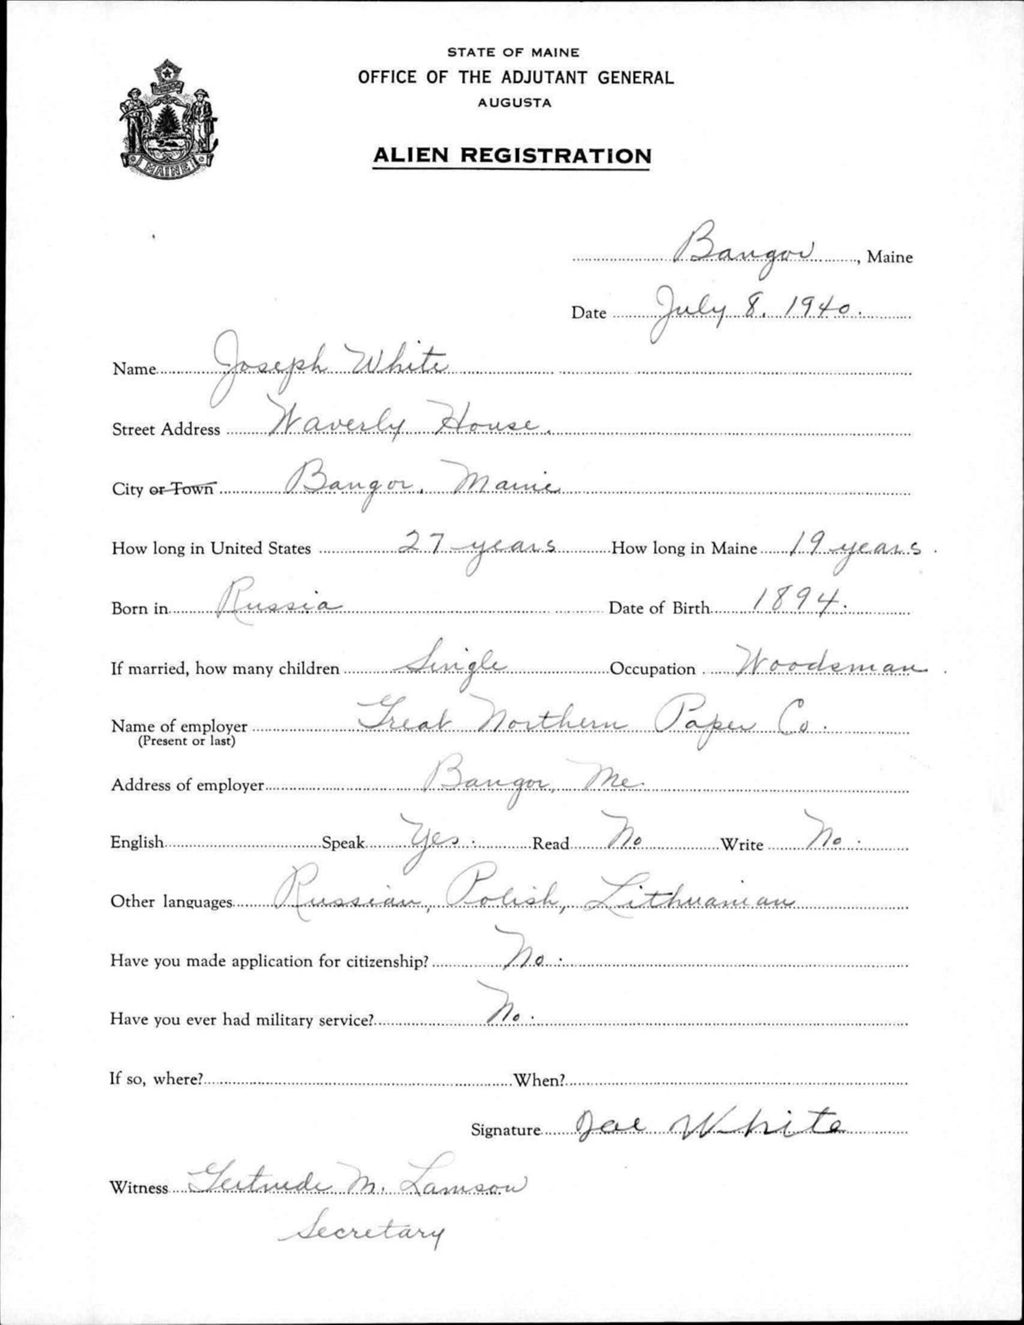 STATE OF MAINE
OFFICE OF THE ADJUTANT GENERAL
AUGUSTA
ALIEN REGISTRATION
MAINE
Bangor, Maine
Date July 8, 1940.
Name Joseph White
Street Address Waverly House.
City or Town Bangor, Maine
How long in United States 27 years How long in Maine 19 years.
Born in Russia Date of Birth 1894.
If married, how many children Single Occupation Woodsman.
Name of employer Great Northern Paper Co.
(Present or last)
Address of employer Bangor, Me.
English Speak Yes. Read No Write No.
Other languages Russian, Polish, Lithuanian
Have you made application for citizenship? No.
Have you ever had military service? No.
If so, where? When?
Signature Joe White
Witness Gertrude M. Lamson
Secretary